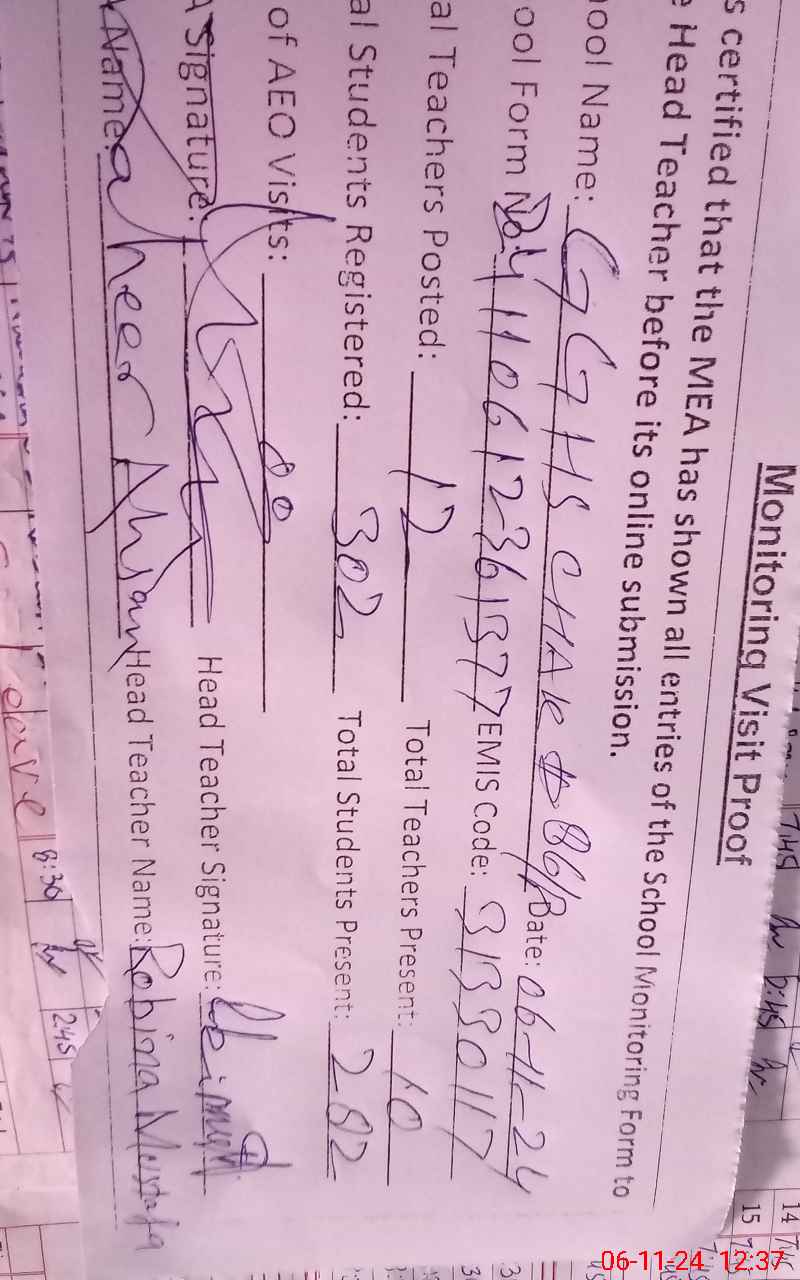 Monitoring Visit Proof
s certified that the MEA has shown all entries of the School Monitoring Form to
e Head Teacher before its online submission.
ool Name: GGHS CHAK # 86/P Date: 06-11-24
ool Form No. 4110612361377 EMIS Code: 31330117
al Teachers Posted: 12 Total Teachers Present: 10
al Students Registered: 302 Total Students Present: 282
of AEO Visits: 00
A Signature: Head Teacher Signature:
A Name: Zaheer Ahsan Head Teacher Name: Robina Mustafa
7:45
8:30
2:45
14 7:45
15
06-11-24 12:37